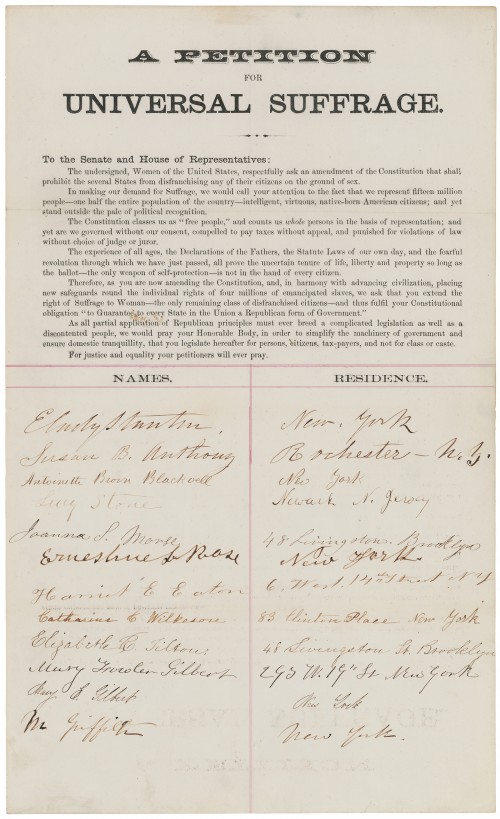 A PETITION
FOR
UNIVERSAL SUFFRAGE.
To the Senate and House of Representatives:
The undersigned, Women of the United States, respectfully ask an amendment of the Constitution that shall
prohibit the several States from disfranchising any of their citizens on the ground of sex.
In making our demand for Suffrage, we would call your attention to the fact that we represent fifteen million
people—one half the entire population of the country—intelligent, virtuous, native-born American citizens; and yet
stand outside the pale of political recognition.
The Constitution classes us as "free people," and counts us whole persons in the basis of representation; and
yet are we governed without our consent, compelled to pay taxes without appeal, and punished for violations of law
without choice of judge or juror.
The experience of all ages, the Declarations of the Fathers, the Statute Laws of our own day, and the fearful
revolution through which we have just passed, all prove the uncertain tenure of life, liberty and property so long as
the ballot—the only weapon of self-protection—is not in the hand of every citizen.
Therefore, as you are now amending the Constitution, and, in harmony with advancing civilization, placing
new safeguards round the individual rights of four millions of emancipated slaves, we ask that you extend the
right of Suffrage to Woman—the only remaining class of disfranchised citizens—and thus fulfil your Constitutional
obligation "to Guarantee to every State in the Union a Republican form of Government."
As all partial application of Republican principles must ever breed a complicated legislation as well as a
discontented people, we would pray your Honorable Body, in order to simplify the machinery of government and
ensure domestic tranquillity, that you legislate hereafter for persons, citizens, tax-payers, and not for class or caste.
For justice and equality your petitioners will ever pray.
NAMES. RESIDENCE.
E Cady Stanton, New York
Susan B. Anthony Rochester — N.Y.
Antoinette Brown Blackwell New York
Lucy Stone Newark N. Jersey
Joanna S. Morse 48 Livingston. Brooklyn
Ernestine L Rose New York
Harriet E Eaton 6. West. 14th Street N.Y
Catharine C Wilkeson 83 Clinton Place New York
Elizabeth R. Tilton: 48 Livingston St. Brooklyn
Mary Fowler Gilbert 293 W. 19th St New York
Mary E Gilbert New York
M Griffith New York.